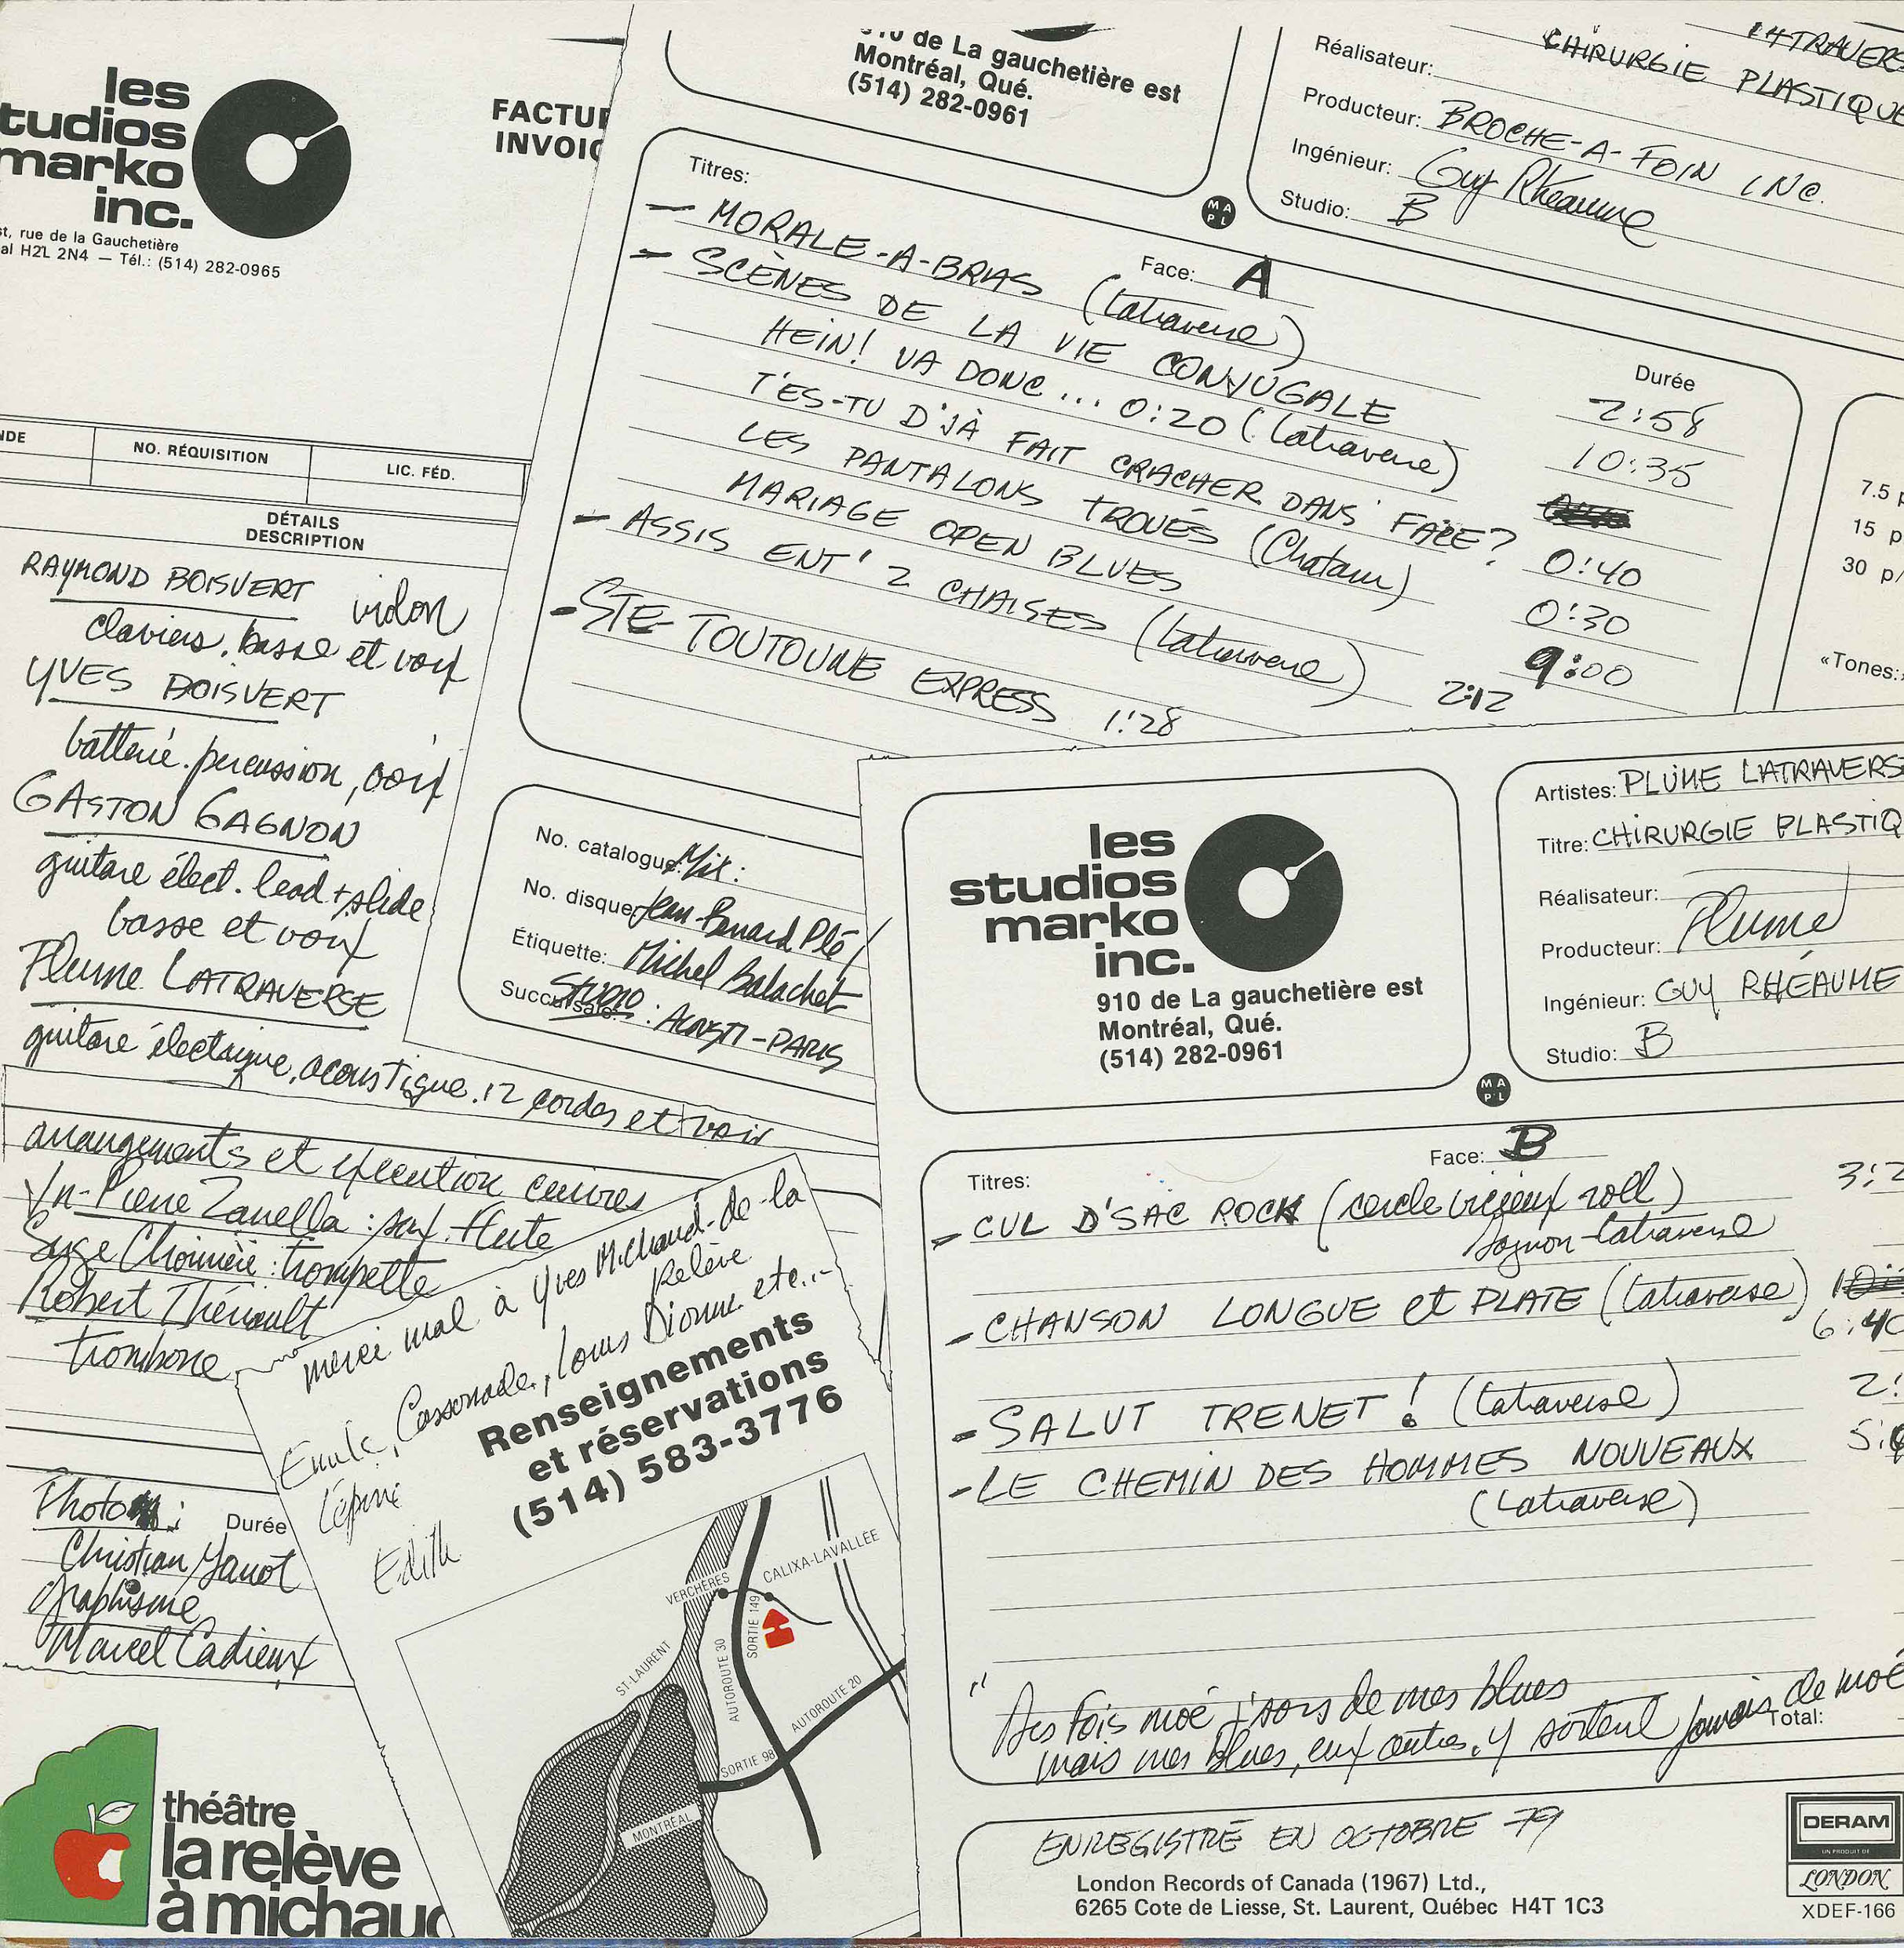 les
tudios
marko
inc.
st, rue de la Gauchetière
al H2L 2N4 — Tél.: (514) 282-0965
FACTU
INVOI
NDE
NO. RÉQUISITION
LIC. FÉD.
DÉTAILS
DESCRIPTION
RAYMOND BOISVERT violon
claviers, basse et voix
YVES BOISVERT
batterie. percussion, voix
GASTON GAGNON
guitare élect. lead + slide
basse et voix
Plume LATRAVERSE
guitare électrique, acoustique. 12 cordes et voix
arrangements et exécution cuivres
Jn-Pierre Zanella : sax. flute
Serge Choinière : trompette
Robert Thériault
trombone
Photos:
Durée
Christian
Graphisme
Marcel Cadieux
théâtre
la relève
à michau
910 de La gauchetière est
Montréal, Qué.
(514) 282-0961
LATRAVERS
CHIRURGIE PLASTIQUE
Réalisateur:
Producteur: BROCHE-A-FOIN INC.
Ingénieur: Guy Rhéaume
Studio: B
MAPL
Titres:
Face: A
Durée
— MORALE-A-BRAS (Latraverse) 2:58
— SCÈNES DE LA VIE CONJUGALE 10:35
HEIN! VA DONC... 0:20 (Latraverse)
T'ES-TU D'JÀ FAIT CRACHER DANS FACE? 0:40
LES PANTALONS TROUÉS (Chatam) 0:30
MARIAGE OPEN BLUES 9:00
— ASSIS ENT' 2 CHAISES (Latraverse) 2:12
- STE-TOUTOUNE EXPRESS 1:28
7.5 p
15 p
30 p/
«Tones:»
No. catalogue: Mix:
No. disque: Jean-Bernard Plé /
Étiquette: Michel Balachet
Succursale: STUDIO: ACOUSTI-PARIS
merci mal à Yves Michaud-de-la
Relève
Cassonade, Louis Dionne etc...
Lépine
Edith
Renseignements
et réservations
(514) 583-3776
VERCHÈRES
CALIXA-LAVALLÉE
SORTIE 149
ST-LAURENT
AUTOROUTE 30
AUTOROUTE 20
SORTIE 98
MONTRÉAL
les
studios
marko
inc.
910 de La gauchetière est
Montréal, Qué.
(514) 282-0961
Artistes: PLUME LATRAVERS
Titre: CHIRURGIE PLASTIQ
Réalisateur:
Producteur: Plume
Ingénieur: GUY RHÉAUME
Studio: B
MAPL
Titres:
Face: B
- CUL D'SAC ROCK (cercle vicieux roll) 3:2
Gagnon-Latraverse
- CHANSON LONGUE et PLATE (Latraverse)
6:40
- SALUT TRENET! (Latraverse) 2:
- LE CHEMIN DES HOMMES NOUVEAUX 5:
(Latraverse)
"Des fois moé j'sors de mes blues
mais mes blues, eux autres, y sortent jamais de moé
Total:
ENREGISTRÉ EN OCTOBRE 79
London Records of Canada (1967) Ltd.,
6265 Cote de Liesse, St. Laurent, Québec H4T 1C3
DERAM
UN PRODUIT DE
LONDON
XDEF-166